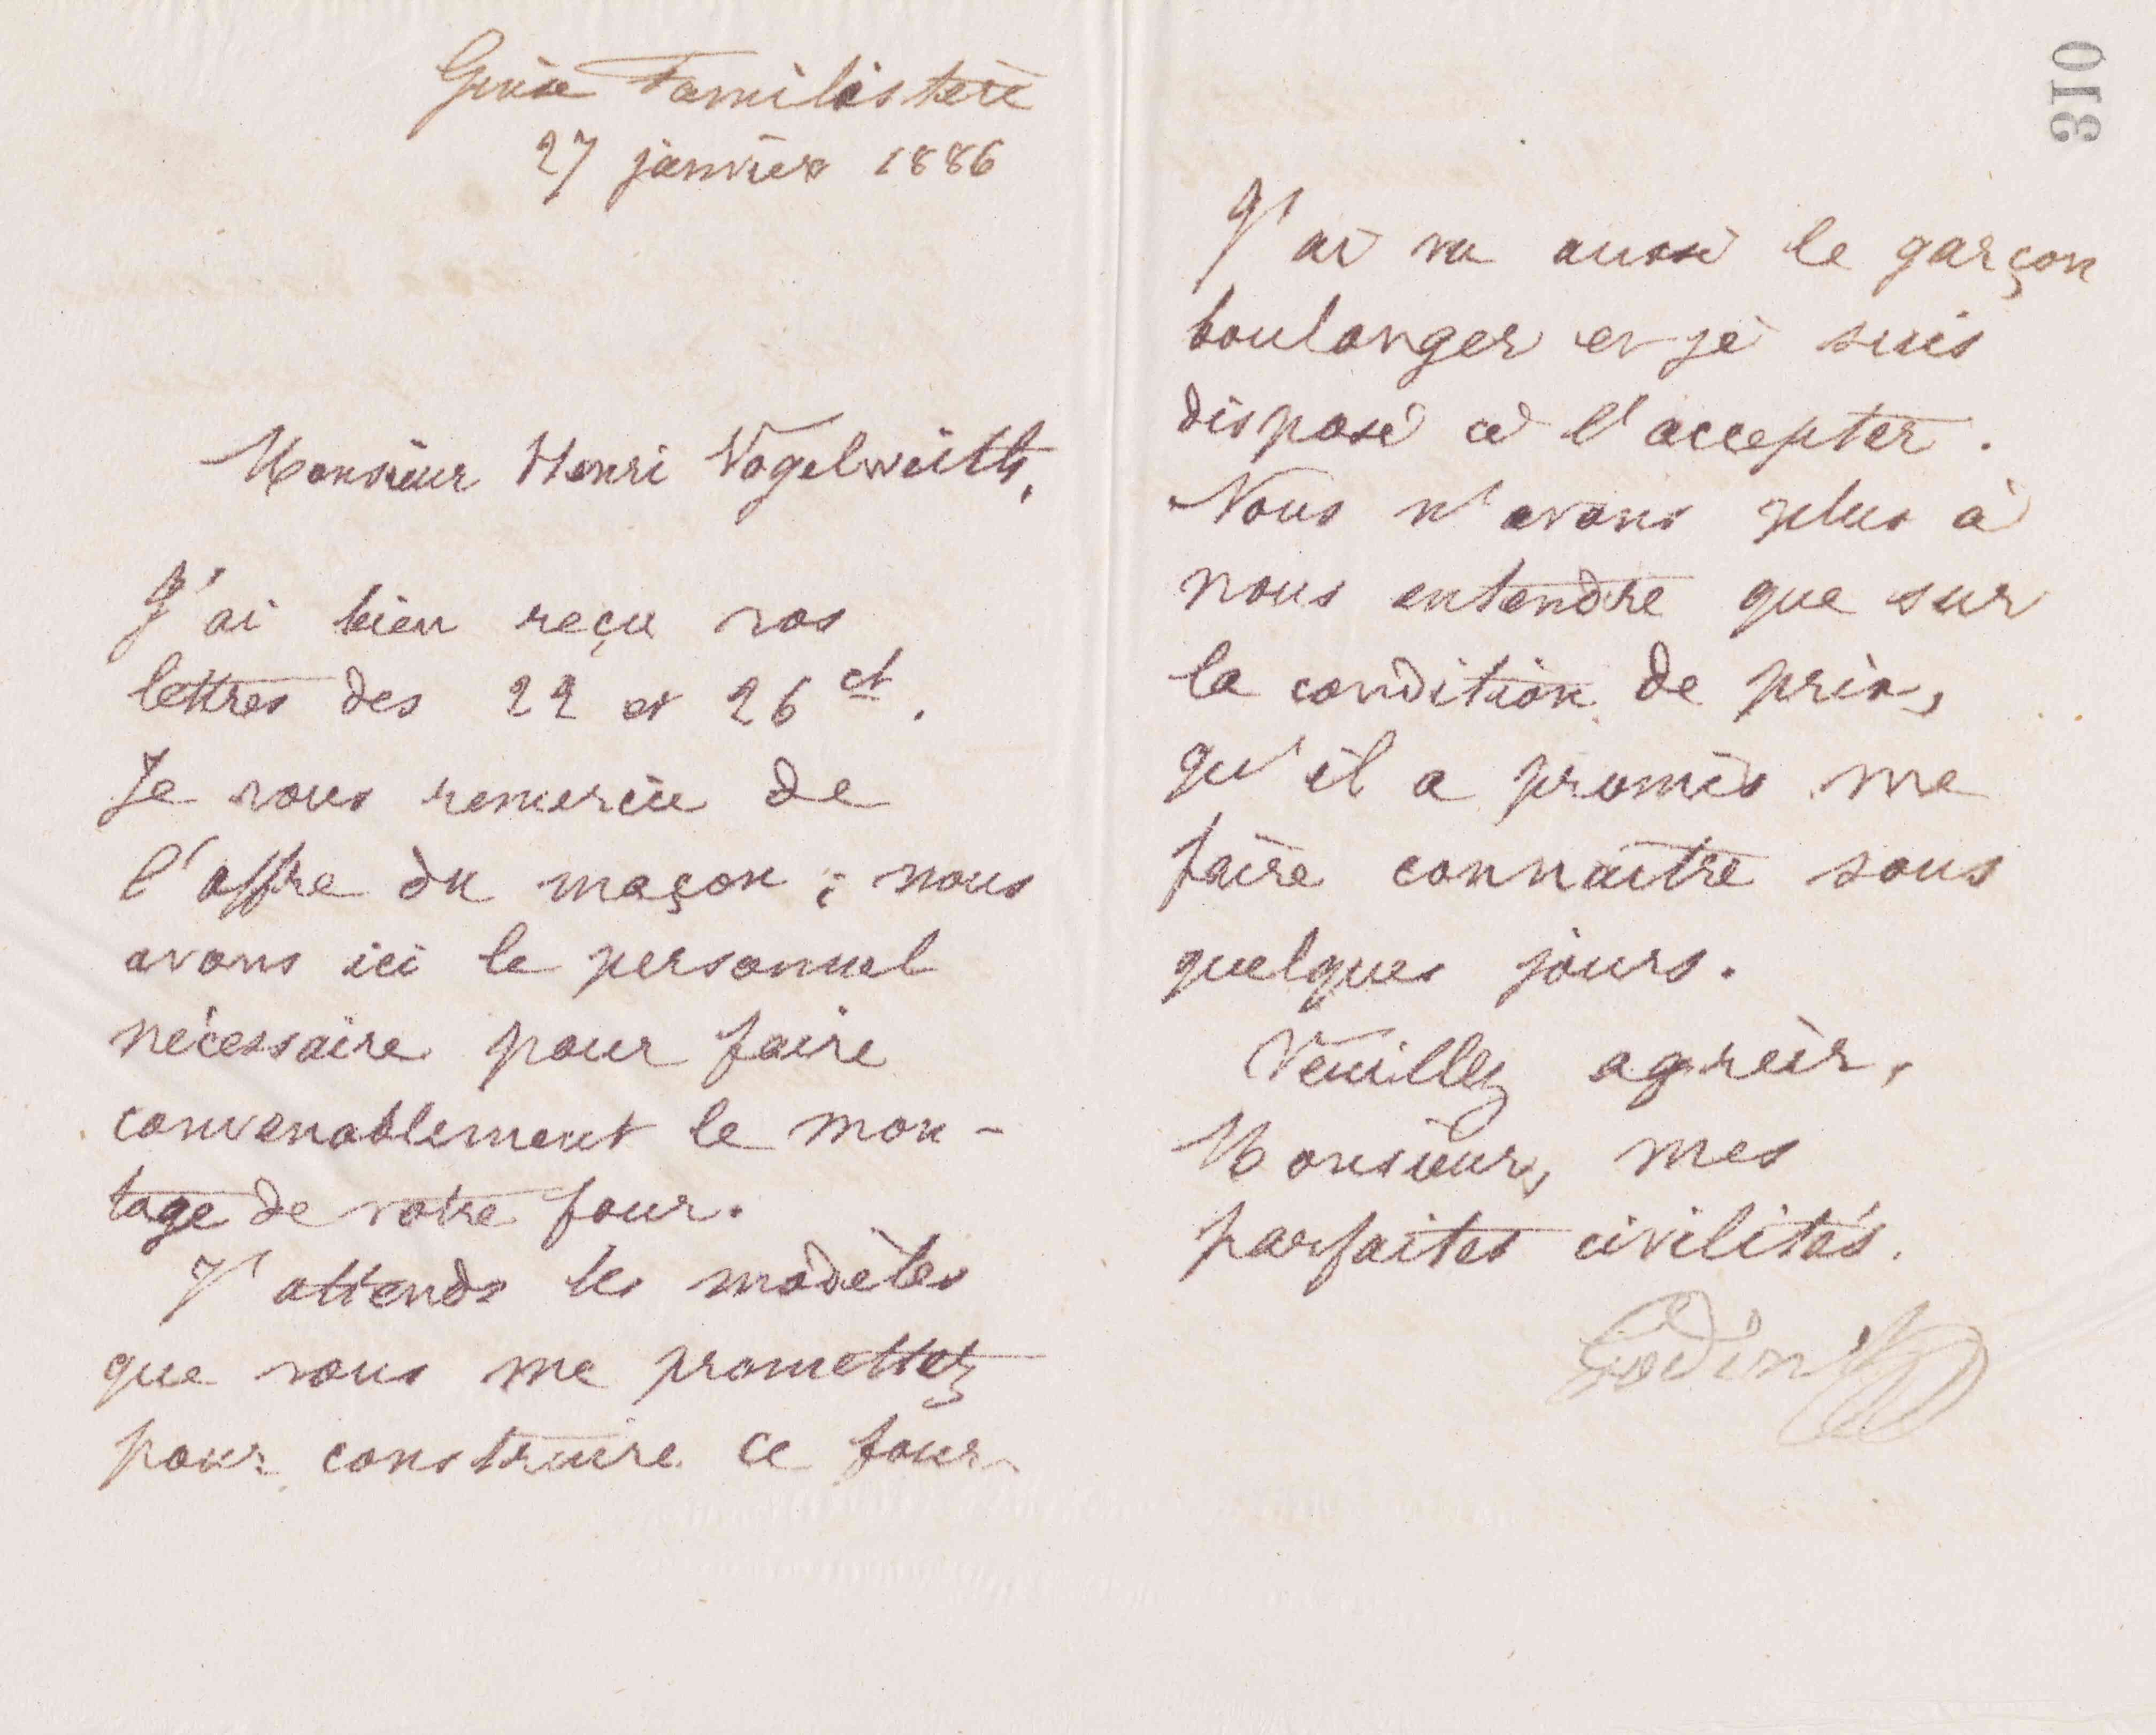 Guise Familistère
27 janvier 1886
Monsieur Henri Vogelweith,
J'ai bien reçu vos
lettres des 22 et 26 ct.
Je vous remercie de
l'offre du maçon ; nous
avons ici le personnel
nécessaire pour faire
convenablement le mon-
tage de votre four.
J'attends les modèles
que vous me promettez
pour construire ce four.
310
J'ai vu aussi le garçon
boulanger et je suis
disposé à l'accepter.
Nous n'avons plus à
nous entendre que sur
la condition de prix,
qu'il a promis me
faire connaître sous
quelques jours.
Veuillez agréer,
Monsieur, mes
parfaites civilités.
Godin